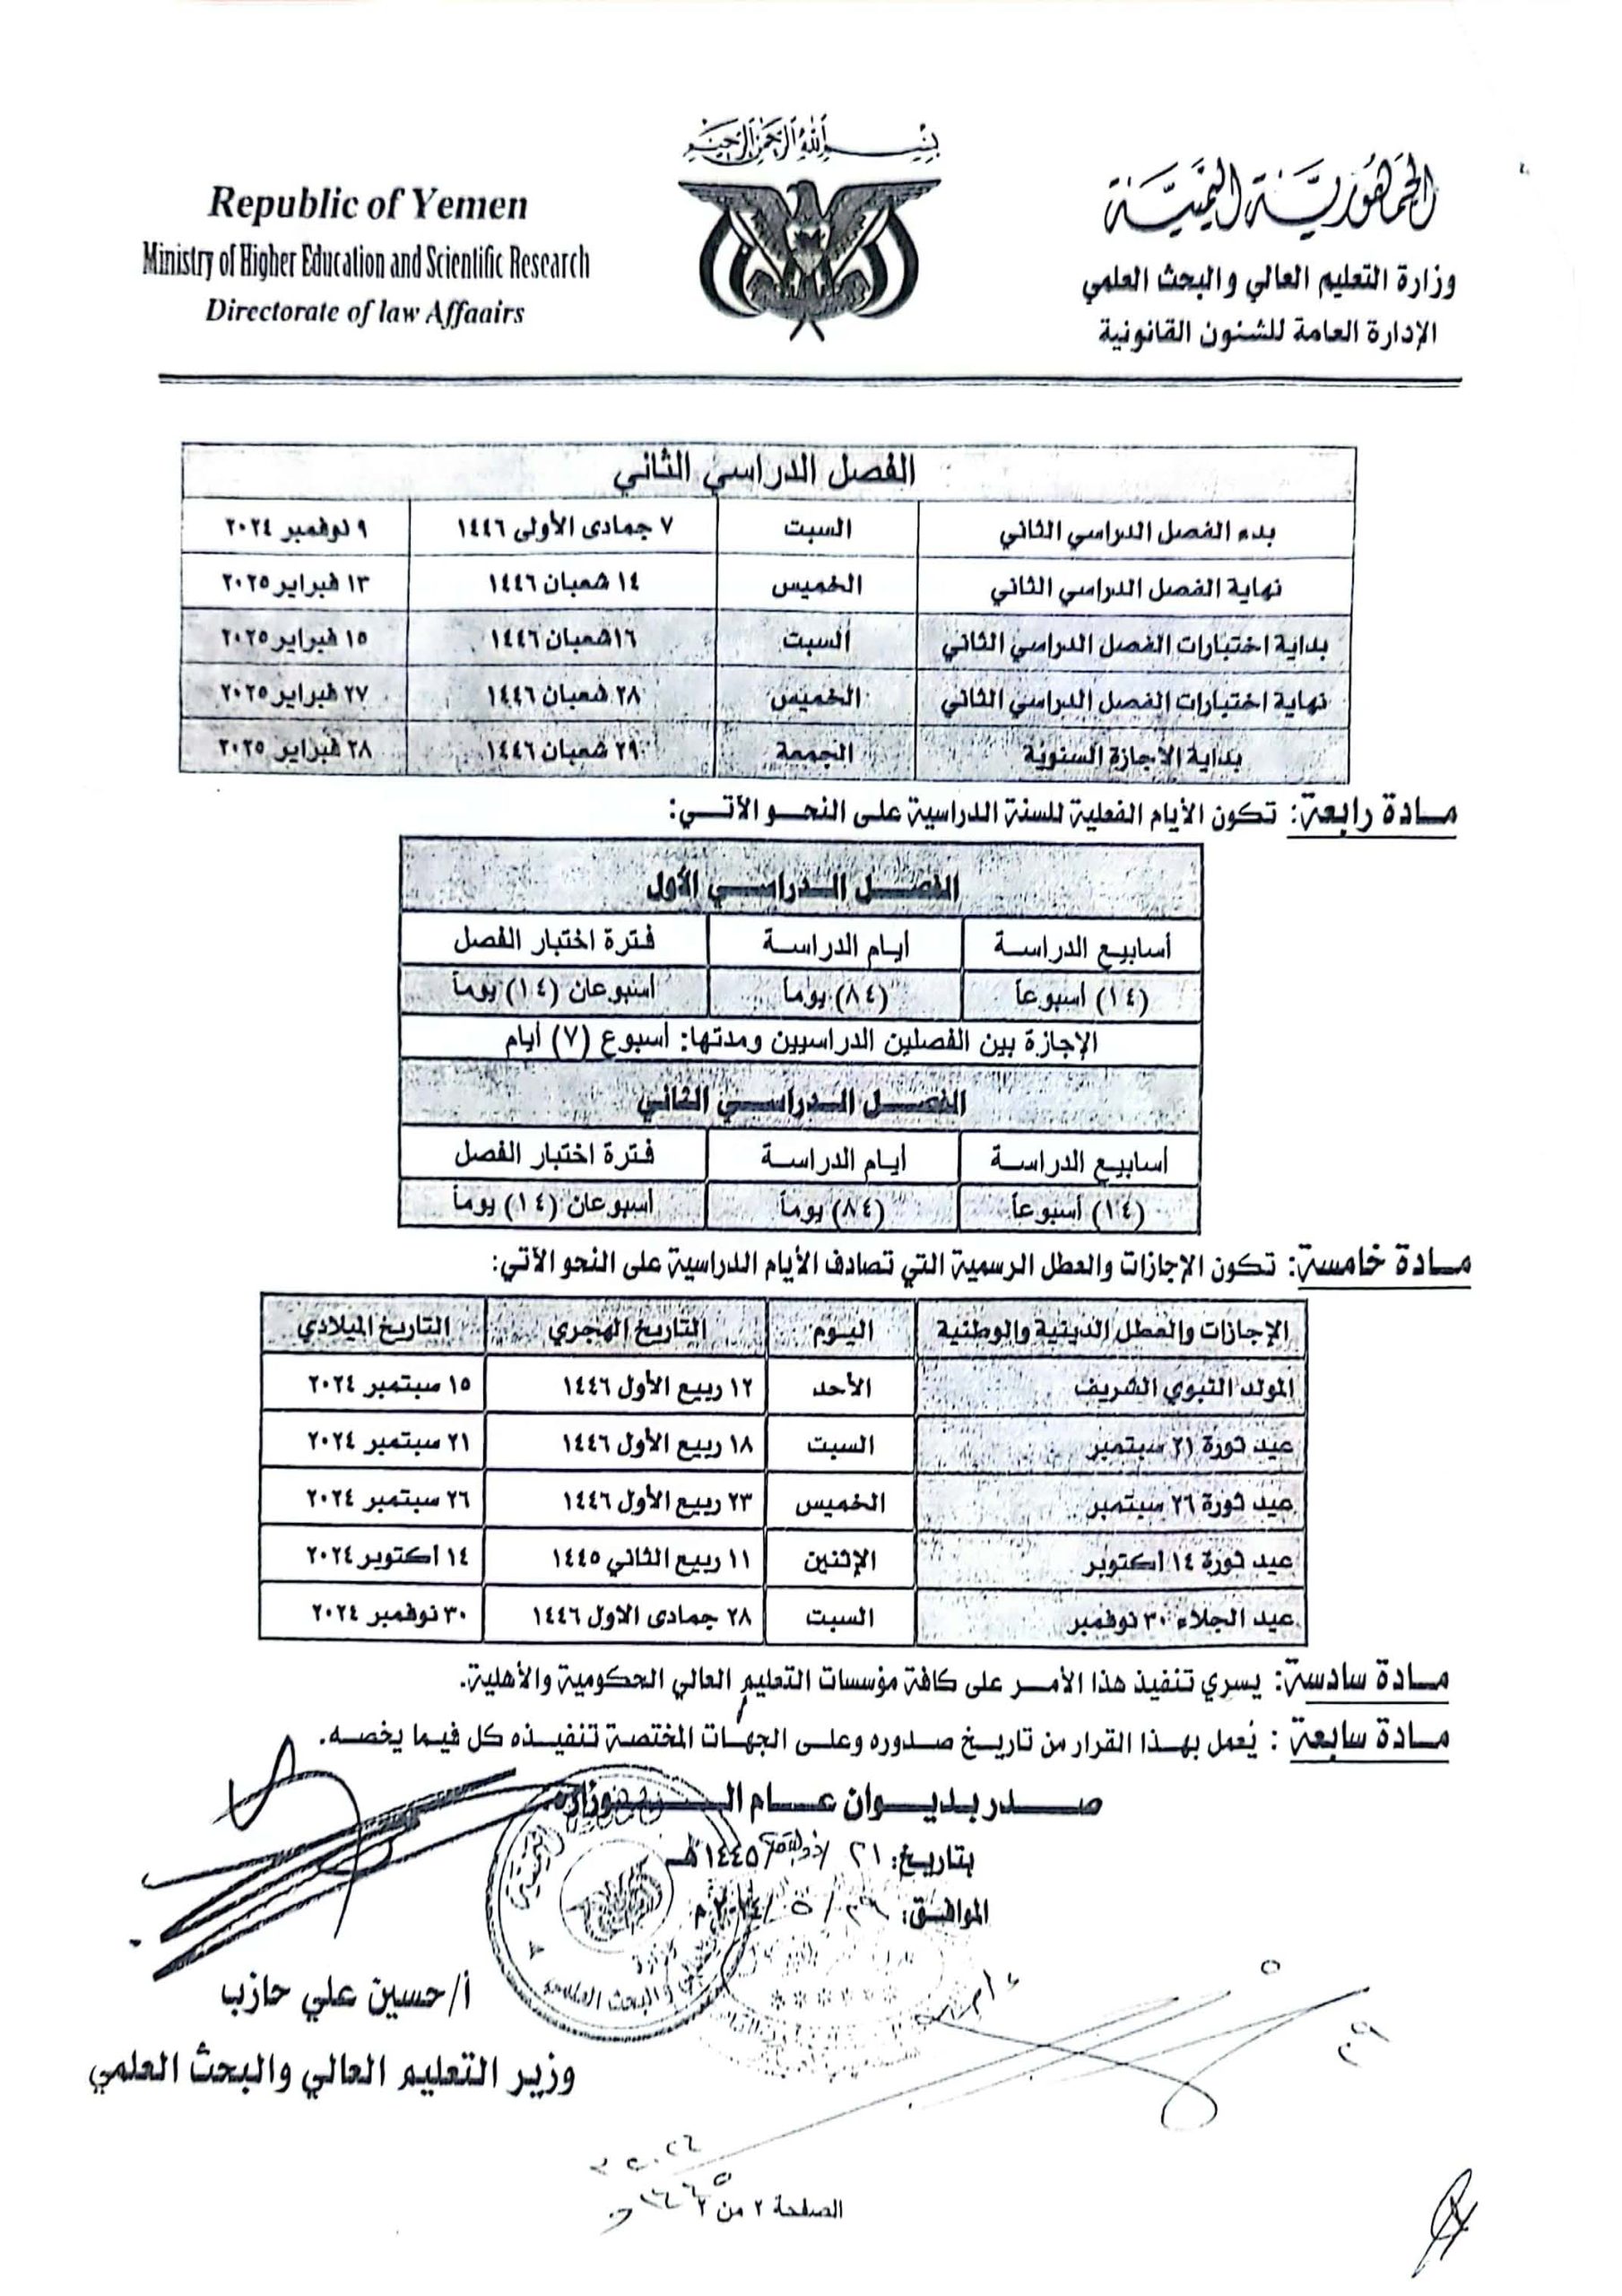 بسم الله الرحمن الرحيم
Republic of Yemen
Ministry of Higher Education and Scientific Research
Directorate of law Affaairs
الجمهورية اليمنية
وزارة التعليم العالي والبحث العلمي
الإدارة العامة للشئون القانونية
الفصل الدراسي الثاني
بدء الفصل الدراسي الثاني السبت ٧ جمادى الأولى ١٤٤٦ ٩ نوفمبر ٢٠٢٤
نهاية الفصل الدراسي الثاني الخميس ١٤ شعبان ١٤٤٦ ١٣ فبراير ٢٠٢٥
بداية اختبارات الفصل الدراسي الثاني السبت ١٦ شعبان ١٤٤٦ ١٥ فبراير ٢٠٢٥
نهاية اختبارات الفصل الدراسي الثاني الخميس ٢٨ شعبان ١٤٤٦ ٢٧ فبراير ٢٠٢٥
بداية الاجازة السنوية الجمعة ٢٩ شعبان ١٤٤٦ ٢٨ فبراير ٢٠٢٥
مـادة رابعة: تكون الأيام الفعلية للسنة الدراسية على النحو الآتي:
الفصل الدراسي الأول
أسابيع الدراسة أيام الدراسة فترة اختبار الفصل
(١٤) أسبوعاً (٨٤) يوماً أسبوعان (١٤) يوماً
الإجازة بين الفصلين الدراسيين ومدتها: أسبوع (٧) أيام
الفصل الدراسي الثاني
أسابيع الدراسة أيام الدراسة فترة اختبار الفصل
(١٤) أسبوعاً (٨٤) يوماً أسبوعان (١٤) يوماً
مـادة خامسة: تكون الإجازات والعطل الرسمية التي تصادف الأيام الدراسية على النحو الآتي:
الإجازات والعطل الدينية والوطنية اليوم التاريخ الهجري التاريخ الميلادي
المولد النبوي الشريف الأحد ١٢ ربيع الأول ١٤٤٦ ١٥ سبتمبر ٢٠٢٤
عيد ثورة ٢١ سبتمبر السبت ١٨ ربيع الأول ١٤٤٦ ٢١ سبتمبر ٢٠٢٤
عيد ثورة ٢٦ سبتمبر الخميس ٢٣ ربيع الأول ١٤٤٦ ٢٦ سبتمبر ٢٠٢٤
عيد ثورة ١٤ أكتوبر الإثنين ١١ ربيع الثاني ١٤٤٥ ١٤ أكتوبر ٢٠٢٤
عيد الجلاء ٣٠ نوفمبر السبت ٢٨ جمادى الاول ١٤٤٦ ٣٠ نوفمبر ٢٠٢٤
مـادة سادسة: يسري تنفيذ هذا الأمر على كافة مؤسسات التعليم العالي الحكومية والأهلية.
مـادة سابعة : يُعمل بهذا القرار من تاريخ صدوره وعلى الجهات المختصة تنفيذه كل فيما يخصه.
صدر بديوان عام الوزارة
بتاريخ: ٢١ / ذو القعدة / ١٤٤٥هـ
الموافق: ٢٩ / ٥ / ٢٠٢٤م
أ/حسين علي حازب
وزير التعليم العالي والبحث العلمي
الصفحة ٢ من ٢